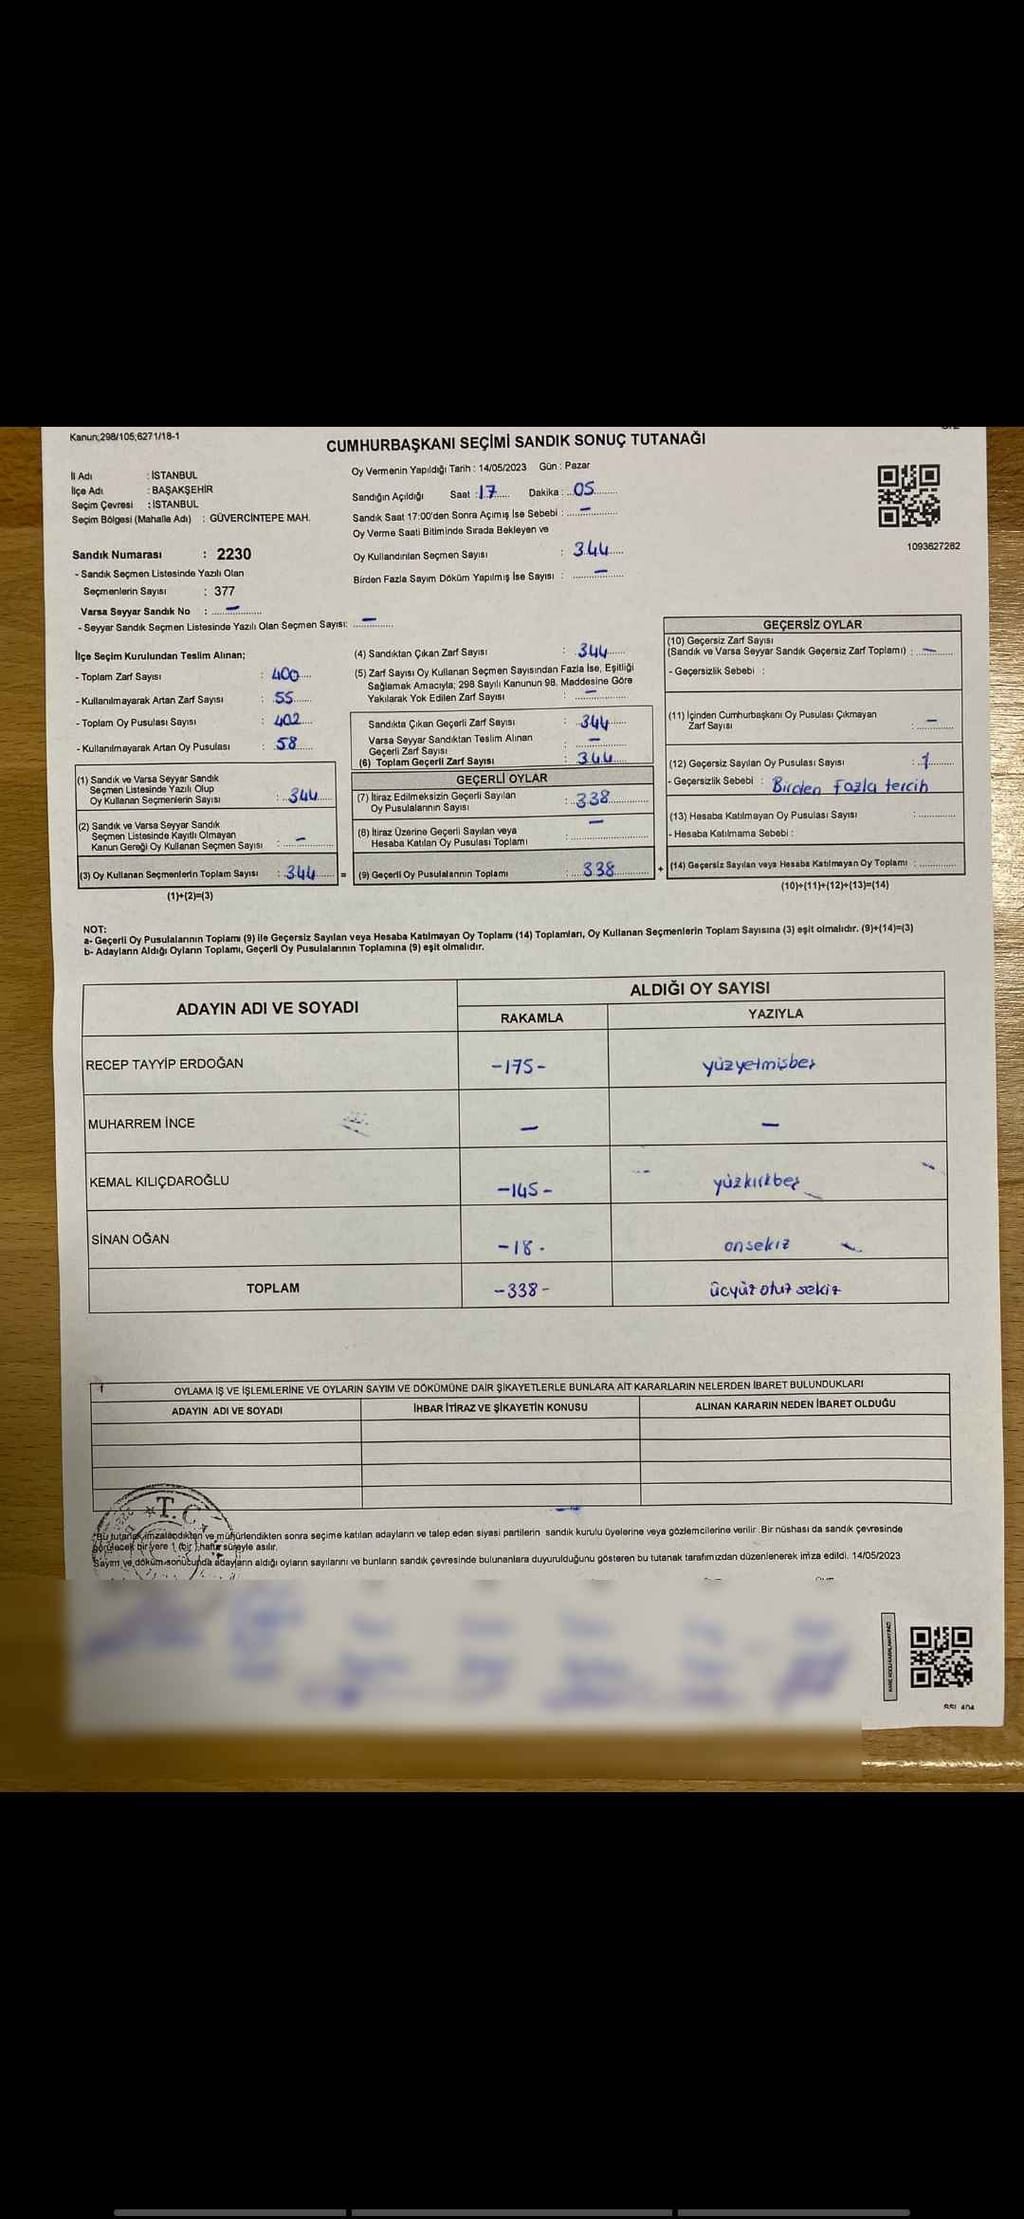 Kanun;298/105;6271/18-1
CUMHURBAŞKANI SEÇİMİ SANDIK SONUÇ TUTANAĞI
İl Adı : İSTANBUL
İlçe Adı : BAŞAKŞEHİR
Seçim Çevresi : İSTANBUL
Seçim Bölgesi (Mahalle Adı) : GÜVERCİNTEPE MAH.
Oy Vermenin Yapıldığı Tarih : 14/05/2023 Gün : Pazar
Sandığın Açıldığı Saat : 17 Dakika : 05
Sandık Saat 17:00'den Sonra Açımış İse Sebebi : –
Oy Verme Saati Bitiminde Sırada Bekleyen ve
Oy Kullandırılan Seçmen Sayısı : 344
Birden Fazla Sayım Döküm Yapılmış İse Sayısı : –
1093627282
Sandık Numarası : 2230
- Sandık Seçmen Listesinde Yazılı Olan
Seçmenlerin Sayısı : 377
Varsa Seyyar Sandık No : –
- Seyyar Sandık Seçmen Listesinde Yazılı Olan Seçmen Sayısı: –
İlçe Seçim Kurulundan Teslim Alınan;
- Toplam Zarf Sayısı : 400
- Kullanılmayarak Artan Zarf Sayısı : 55
- Toplam Oy Pusulası Sayısı : 402
- Kullanılmayarak Artan Oy Pusulası : 58
(1) Sandık ve Varsa Seyyar Sandık
Seçmen Listesinde Yazılı Olup
Oy Kullanan Seçmenlerin Sayısı : 344
(2) Sandık ve Varsa Seyyar Sandık
Seçmen Listesinde Kayıtlı Olmayan
Kanun Gereği Oy Kullanan Seçmen Sayısı : –
(3) Oy Kullanan Seçmenlerin Toplam Sayısı : 344 =
(1)+(2)=(3)
(4) Sandıktan Çıkan Zarf Sayısı : 344
(5) Zarf Sayısı Oy Kullanan Seçmen Sayısından Fazla İse, Eşitliği
Sağlamak Amacıyla; 298 Sayılı Kanunun 98. Maddesine Göre
Yakılarak Yok Edilen Zarf Sayısı : –
Sandıkta Çıkan Geçerli Zarf Sayısı : 344
Varsa Seyyar Sandıktan Teslim Alınan
Geçerli Zarf Sayısı : –
(6) Toplam Geçerli Zarf Sayısı : 344
GEÇERLİ OYLAR
(7) İtiraz Edilmeksizin Geçerli Sayılan
Oy Pusulalarının Sayısı : 338
(8) İtiraz Üzerine Geçerli Sayılan veya
Hesaba Katılan Oy Pusulası Toplamı : –
(9) Geçerli Oy Pusulalarının Toplamı : 338 +
GEÇERSİZ OYLAR
(10) Geçersiz Zarf Sayısı
(Sandık ve Varsa Seyyar Sandık Geçersiz Zarf Toplamı) : –
- Geçersizlik Sebebi :
(11) İçinden Cumhurbaşkanı Oy Pusulası Çıkmayan
Zarf Sayısı : –
(12) Geçersiz Sayılan Oy Pusulası Sayısı : 1
- Geçersizlik Sebebi : Birden Fazla tercih
(13) Hesaba Katılmayan Oy Pusulası Sayısı :
- Hesaba Katılmama Sebebi :
(14) Geçersiz Sayılan veya Hesaba Katılmayan Oy Toplamı :
(10)+(11)+(12)+(13)=(14)
NOT:
a- Geçerli Oy Pusulalarının Toplamı (9) ile Geçersiz Sayılan veya Hesaba Katılmayan Oy Toplamı (14) Toplamları, Oy Kullanan Seçmenlerin Toplam Sayısına (3) eşit olmalıdır. (9)+(14)=(3)
b- Adayların Aldığı Oyların Toplamı, Geçerli Oy Pusulalarının Toplamına (9) eşit olmalıdır.
ADAYIN ADI VE SOYADI
ALDIĞI OY SAYISI
RAKAMLA YAZIYLA
RECEP TAYYİP ERDOĞAN -175- yüzyetmişbeş
MUHARREM İNCE – –
KEMAL KILIÇDAROĞLU -145- yüzkırkbeş
SİNAN OĞAN -18- onsekiz
TOPLAM -338- üçyüz otuz sekiz
OYLAMA İŞ VE İŞLEMLERİNE VE OYLARIN SAYIM VE DÖKÜMÜNE DAİR ŞİKAYETLERLE BUNLARA AİT KARARLARIN NELERDEN İBARET BULUNDUKLARI
ADAYIN ADI VE SOYADI İHBAR İTİRAZ VE ŞİKAYETİN KONUSU ALINAN KARARIN NEDEN İBARET OLDUĞU
T.C.
*Bu tutanak imzalandıktan ve mühürlendikten sonra seçime katılan adayların ve talep eden siyasi partilerin sandık kurulu üyelerine veya gözlemcilerine verilir. Bir nüshası da sandık çevresinde
görülecek bir yere 1 (bir) hafta süreyle asılır.
Sayım ve döküm sonucunda adayların aldığı oyların sayılarını ve bunların sandık çevresinde bulunanlara duyurulduğunu gösteren bu tutanak tarafımızdan düzenlenerek imza edildi. 14/05/2023